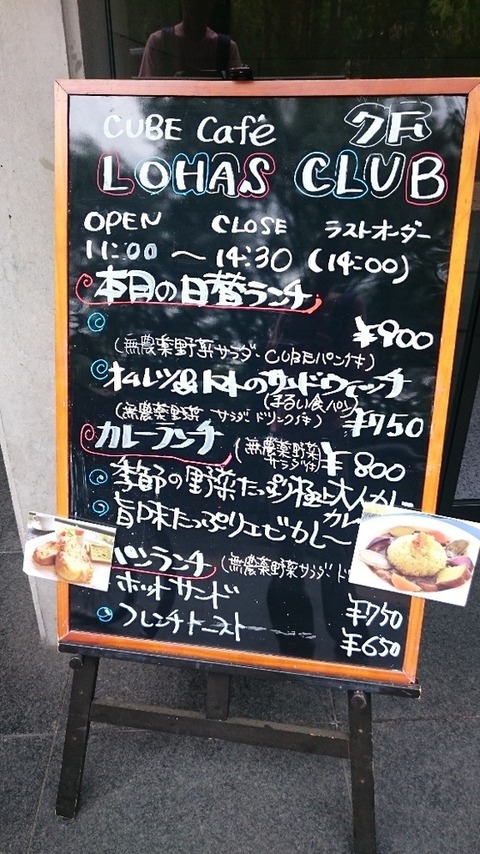 CUBE Café
LOHAS CLUB
OPEN CLOSE ラストオーダー
11:00 〜 14:30 (14:00)
本日の日替ランチ
¥900
(無農薬野菜サラダ・CUBEパン付)
オムレツ&トマトのサンドウィッチ
(まるい食パン)
(無農薬野菜 サラダ ドリンク付) ¥750
カレーランチ (無農薬野菜サラダ付) ¥800
季節の野菜たっぷり極上大人カレー
旨味たっぷりエビカレー
パンランチ (無農薬野菜サラダ・ド
ホットサンド ¥750
フレンチトースト ¥650